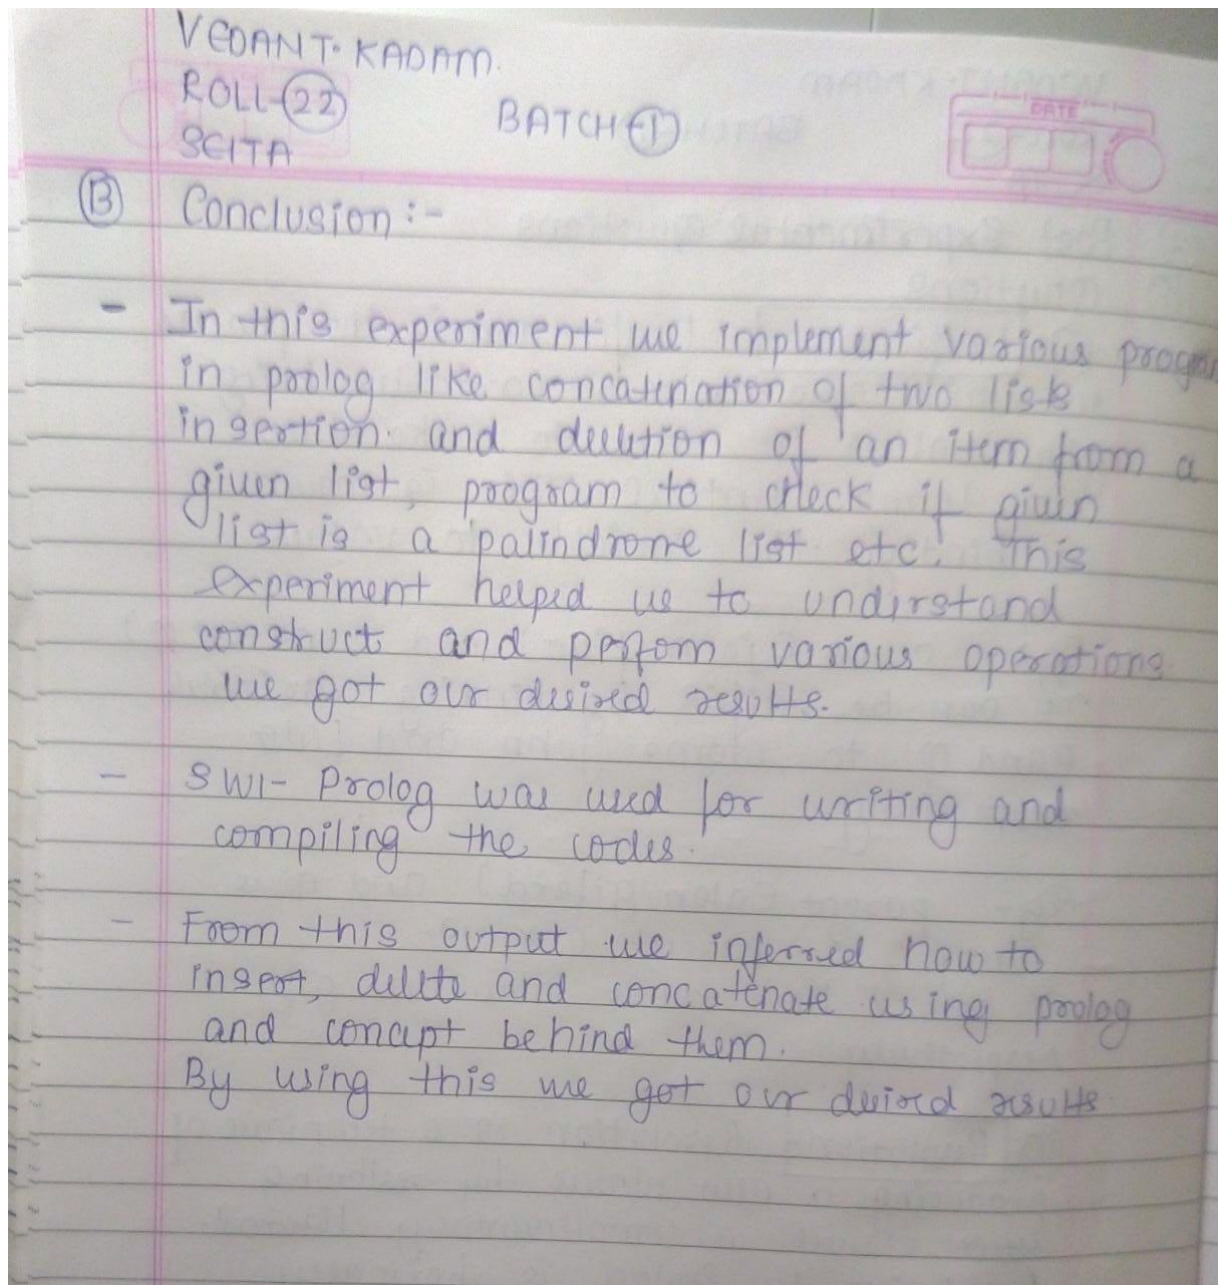 VEDANT. KADAM.
ROLL-22
BATCH-1
SEITA
DATE
B Conclusion :-
- In this experiment we implement various progra
in prolog like concatenation of two lists
insertion. and deletion of an item from a
given list, program to check if given
list is a palindrome list etc. This
experiment helped us to understand
construct and perfom various operations
we got our desired results.
- SWI- Prolog was used for writing and
compiling the codes.
- From this output we inferred how to
insert, delete and concatenate using prolog
and concept behind them.
By using this we got our desired results